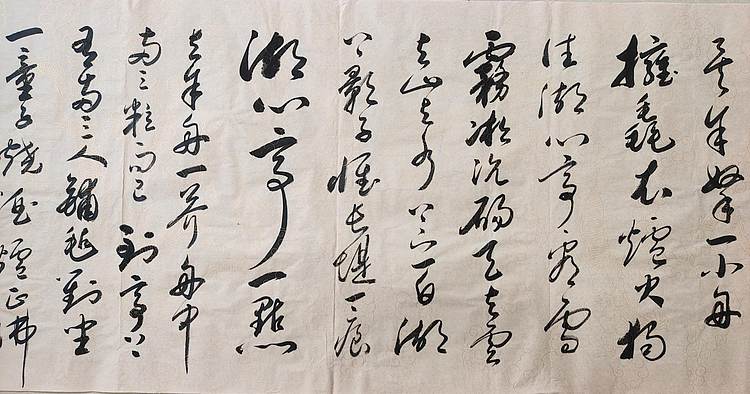 矣余拏一小舟
擁毳衣爐火獨
往湖心亭看雪
霧凇沆碭天與雲
與山與水上下一白湖
上影子惟長堤一痕
湖心亭一點
與余舟一芥舟中
兩三粒而已到亭上
有兩三人鋪氈對坐
一童子燒酒爐正沸